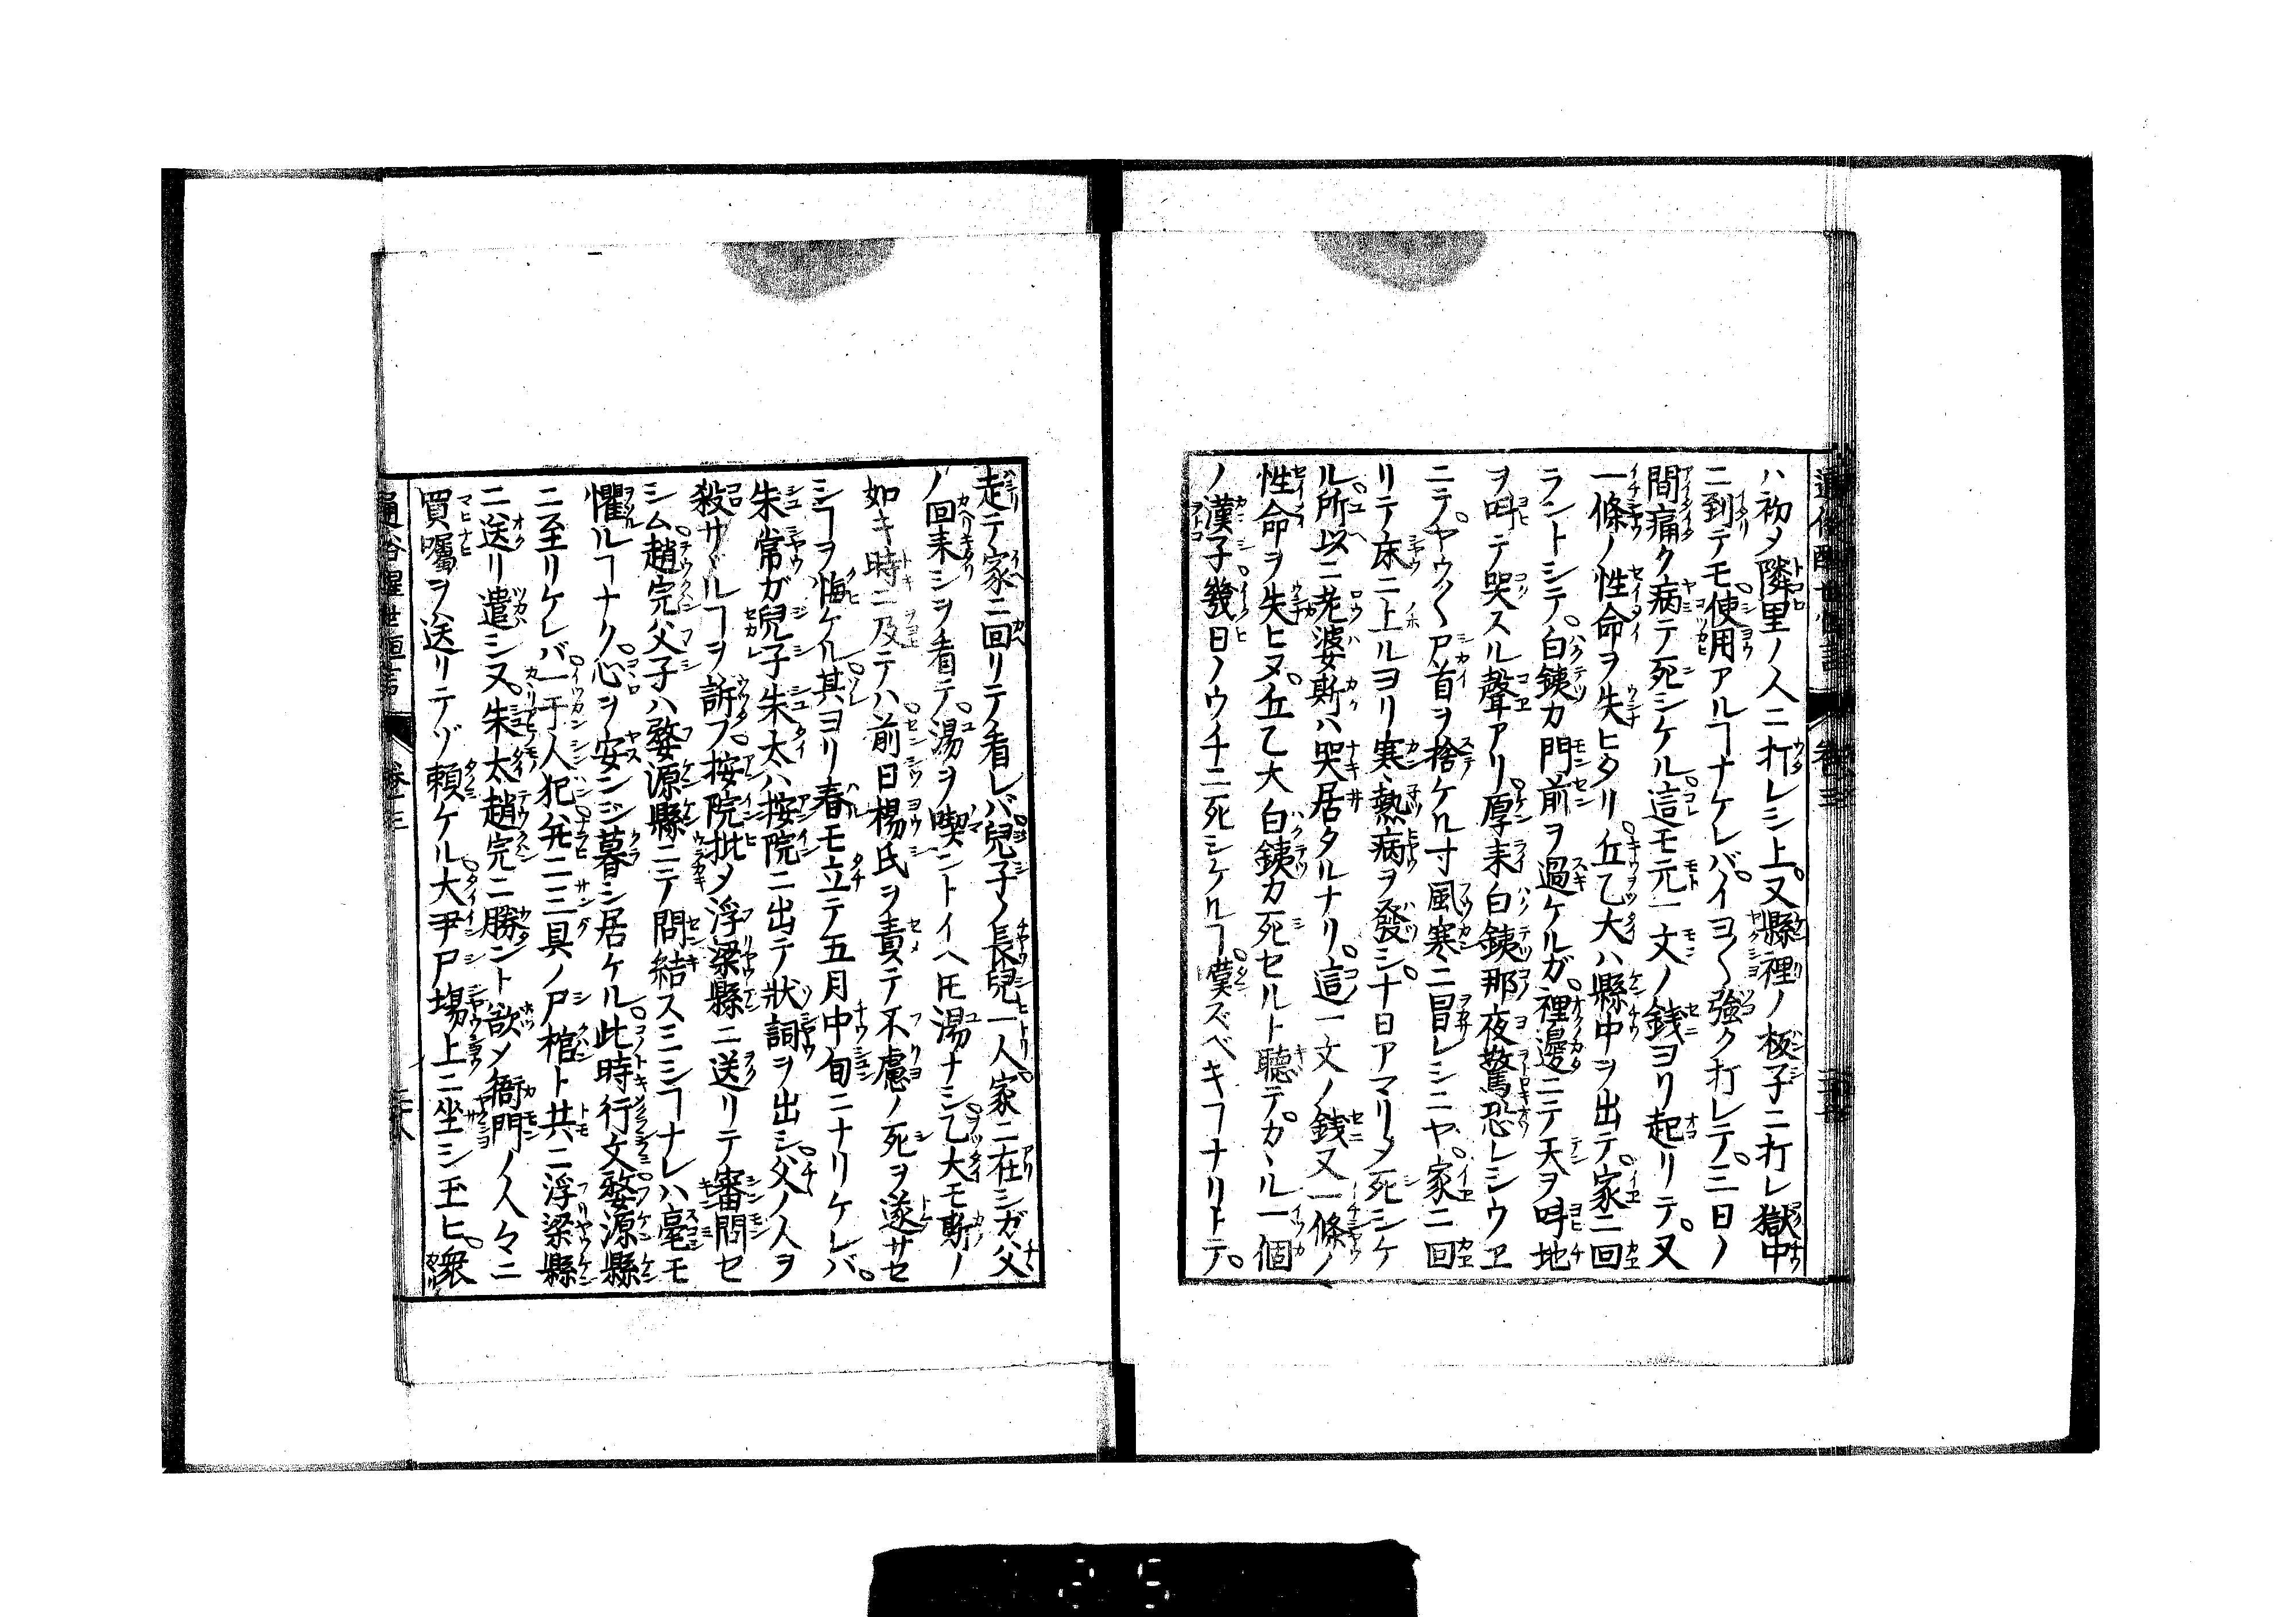 ハ初メ隣里ノ人ニ打レシ上。又縣裡ノ板子ニ打レ獄中
ニ到テモ使用アルヿナケレバ。イヨ〱強ク打レテ。三日ノ
間痛ク病テ死シケル。這モ元一文ノ銭ヨリ起リテ。又
一條ノ性命ヲ失ヒタリ。丘乙大ハ縣中ヲ出テ。家ニ回
ラントシテ。白鉄カ門前ヲ過ケルガ。裡邊ニテ天ヲ呼地
ヲ呼テ哭スル聲アリ。厚来白鉄那夜驚恐レシウヱ
ニテ。ヤウ〱ト首ヲ捨ケル寸風寒ニ冒レシニヤ。家ニ回
リテ床ニ上ルヨリ寒熱病ヲ發シ。十日アマリメ死シケ
ル。所以ニ老婆斯ハ哭居タルナリ。這一文ノ銭又一條ノ
性命ヲ失ヒヌ。丘乙大白鉄カ死セルト聽テ。カヽル一個
ノ漢子。幾日ノウチニ死シケルヿ。嘆ズベキヿナリトテ。
走テ家ニ回リテ看レバ。兒子ノ長兒一人。家ニ在シガ父
ノ回来シヲ看テ。湯ヲ喫ントイヘ𪜈湯ナシ。乙大モ斯ノ
如キ時ニ及テハ。前日楊氏ヲ責テ不慮ノ死ヲ遂サセ
シヿヲ悔ケル。其ヨリ春モ立テ五月中旬ニナリケレバ。
朱常ガ兒子朱太ハ按院ニ出テ狀詞ヲ出シ。父ノ人ヲ
殺サヾルヿヲ訴フ。按院批メ浮梁縣ニ送リテ審問セ
シム。趙完父子ハ婺源縣ニテ問結スミシヿナレハ毫モ
懼ルヿナク。心ヲ安ンジ暮シ居ケル。此時行文婺源縣
ニ至リケレバ。一干人犯幷二三具ノ尸棺ト共ニ浮梁縣
ニ送リ遣シヌ。朱太趙完ニ勝ント欲メ衙門ノ人々ニ
買囑ヲ送リテゾ頼ケル。大尹尸塲上ニ坐シ玉ヒ。衆
通俗醒世恒言 卷三